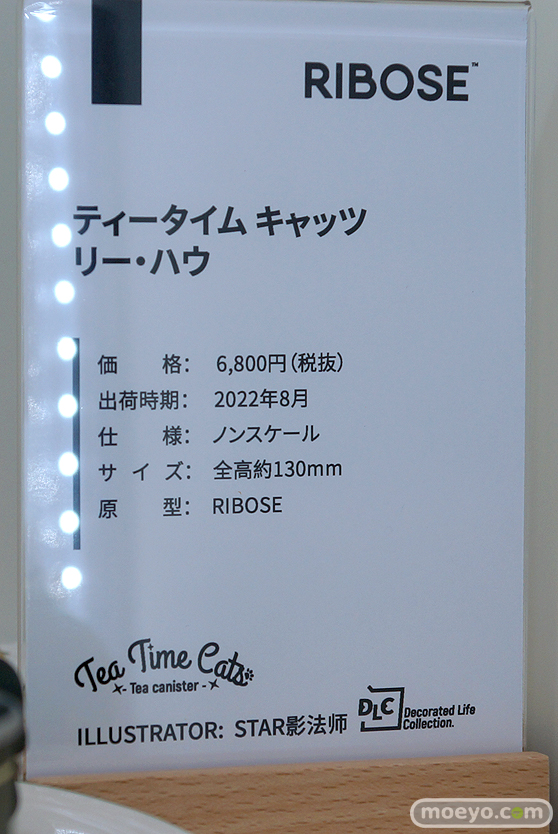 RIBOSE™
ティータイム キャッツ
リー・ハウ
価　格： 6,800円（税抜）
出荷時期： 2022年8月
仕　様： ノンスケール
サイズ： 全高約130mm
原　型： RIBOSE
Tea Time Cats
- Tea canister -
ILLUSTRATOR: STAR影法师
DLC Decorated Life
Collection.
moeyo.com